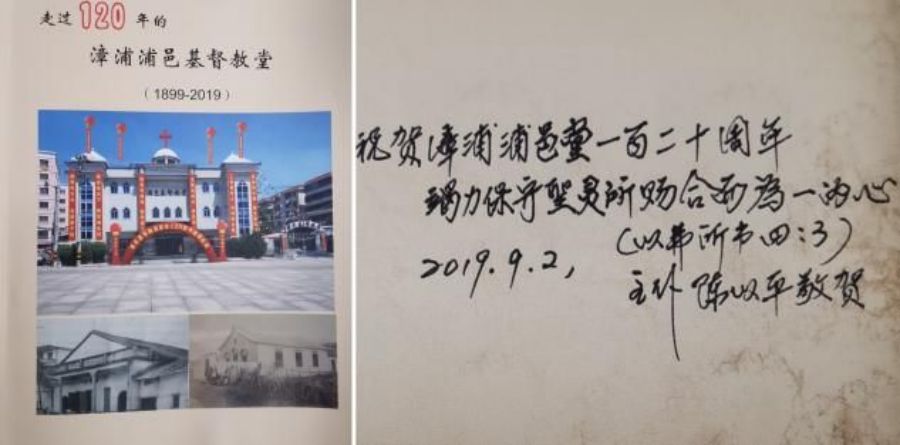 走过120年的
漳浦浦邑基督教堂
（1899-2019）
祝贺漳浦浦邑堂一百二十周年
竭力保守圣灵所赐合而为一的心
（以弗所书四：3）
2019.9.2,
主仆 陈以平敬贺